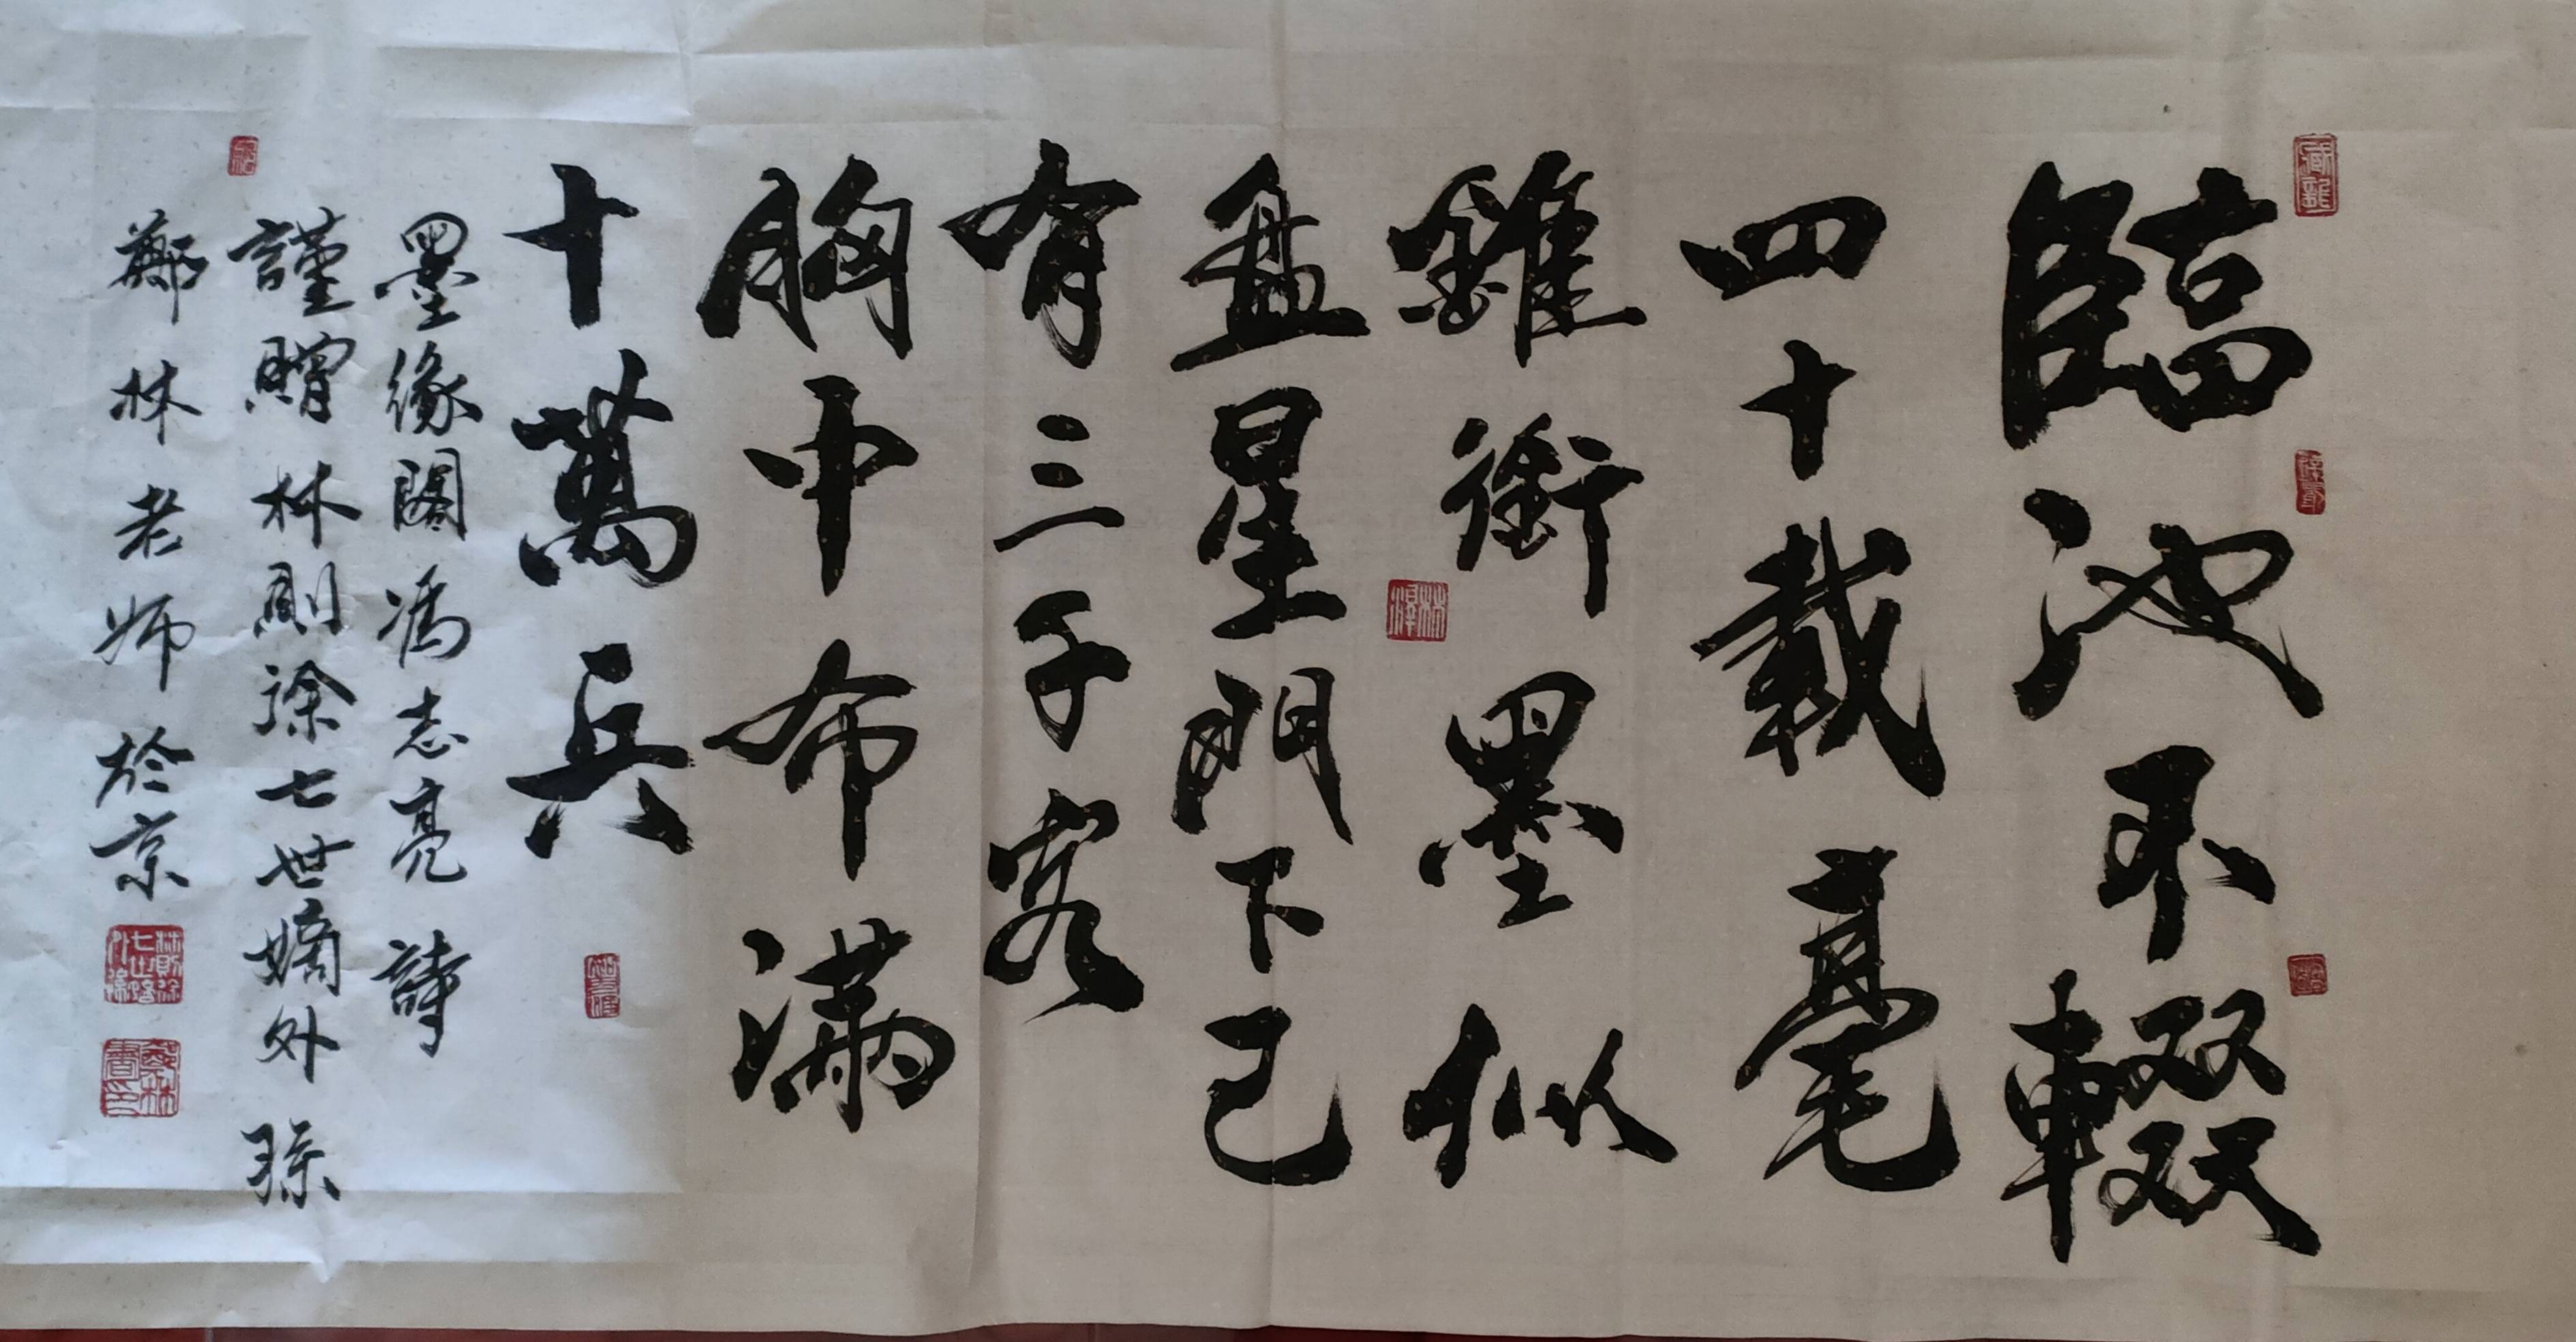 臨池不輟
四十載毫
錐銜墨似
盘星門下已
有三千客
胸中布滿
十萬兵
墨緣閣馮志亮詩
謹贈林則涂七世嫡外孫
鄭林老師於京